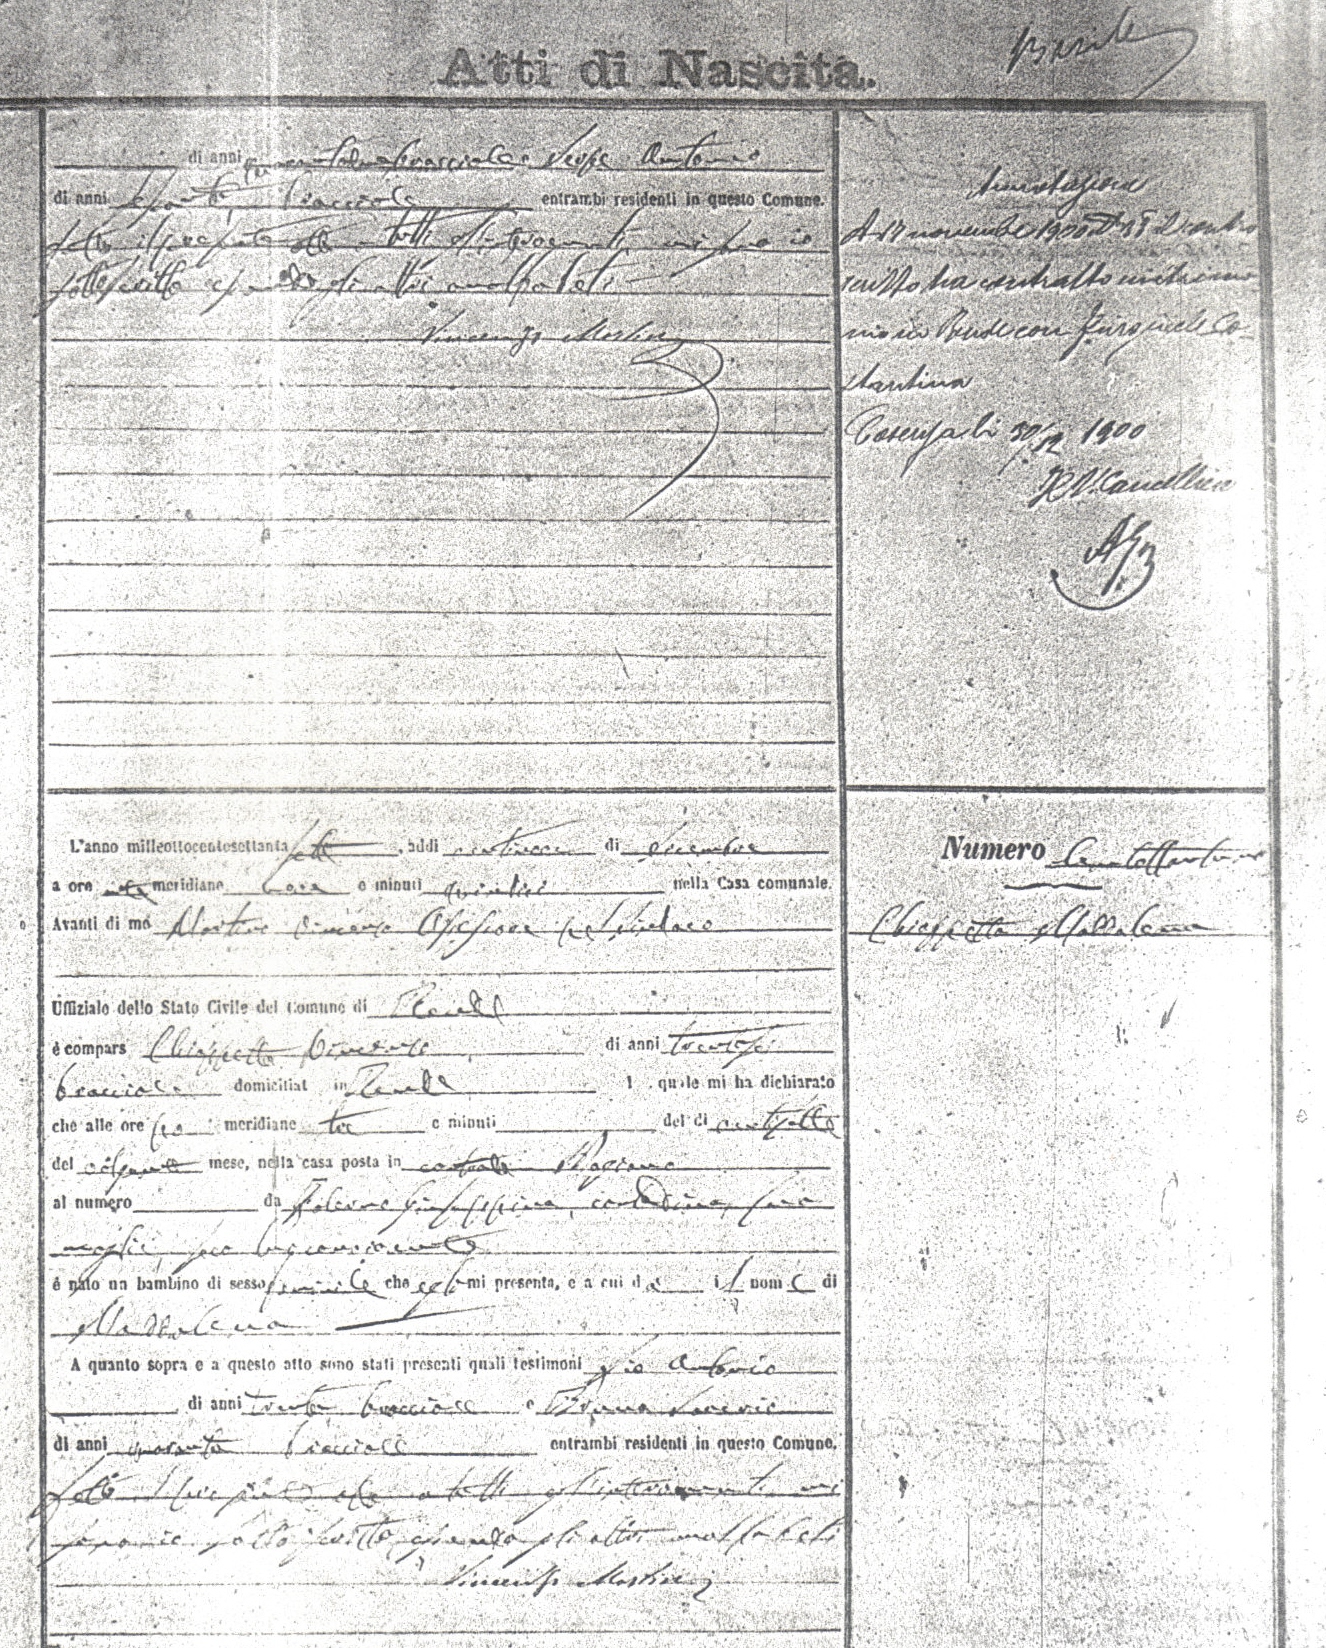 Atti di Nascita.
di anni e Serpe Antonio
di anni entrambi residenti in questo Comune.
Letto il presente atto a tutti gl'intervenuti, mi sono io
sottoscritto essendo gli altri analfabeti
Vincenzo Martire
Annotazione
A 17 novembre 1900 il contro
scritto ha contratto matrimo
nio in Rende con Co
stantina
Cosenza li 30/12 1900
Il V. Cancelliere
L'anno milleottocentosettanta sette, addi di Decembre
a ore meridiane nove e minuti quindici nella Casa comunale.
Avanti di me Martire Vincenzo Assessore pel Sindaco
Uffiziale dello Stato Civile del Comune di Rende
è compars Chiappetta Vincenzo di anni trentasei
bracciale domiciliat in Rende l quale mi ha dichiarato
che alle ore po meridiane tre e minuti del dì ventisette
del volgente mese, nella casa posta in contrada
al numero da Giuseppina, contadina, sua
moglie, seco lui convivente
è nato un bambino di sesso feminile che egli mi presenta, e a cui dà il nome di
Maddalena
A quanto sopra e a questo atto sono stati presenti quali testimoni Antonio
di anni trenta bracciale e Bruno Saverio
di anni quaranta bracciale entrambi residenti in questo Comune.
Letto il presente atto a tutti gl'intervenuti mi
sono io sottoscritto essendo gli altri analfabeti
Vincenzo Martire
Numero
Chiappetta Maddalena